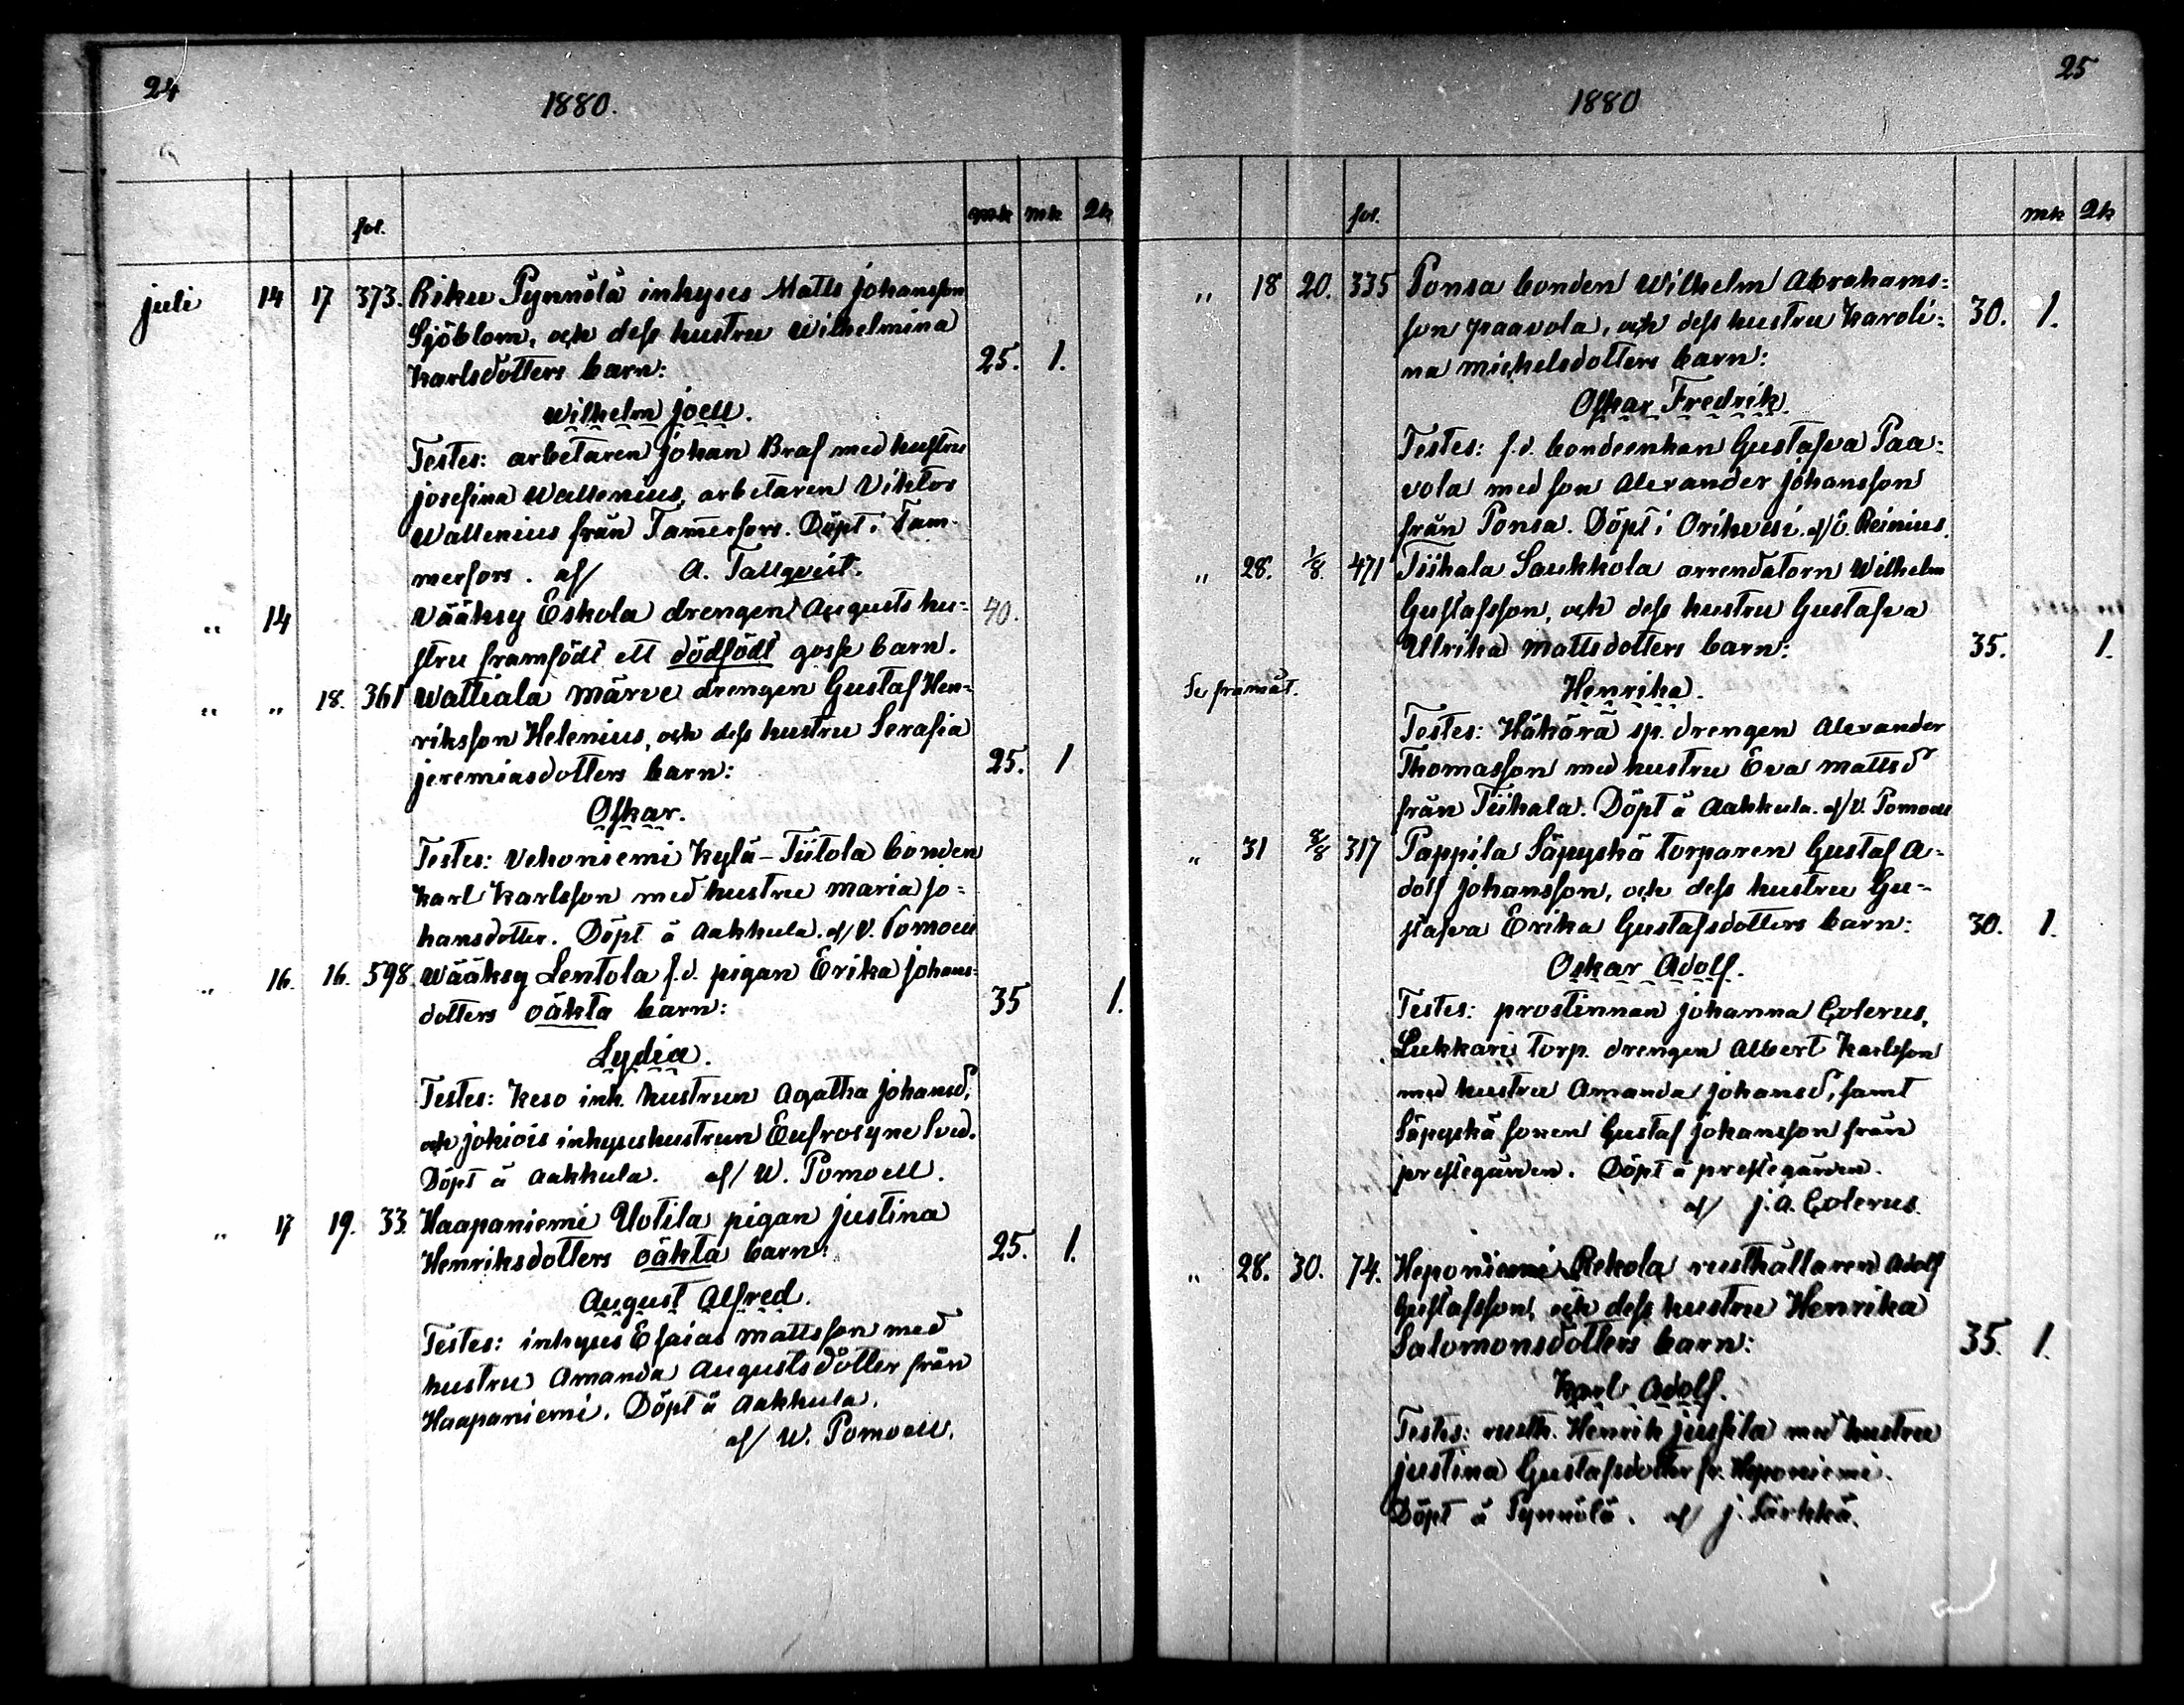 24
1880.
fol. mk mk Qk
juli 14 17 373. Riku Pynnölä inhyses Matts Johansson
Sjöblom, och dess hustru Wilhelmina
Karlsdotters barn: 25. 1.
Wilhelm Joell.
Testes: arbetaren Johan Braf med hustru
Josefina Wallenius, arbetaren Viktor
Wallenius från Tam̄erfors. Döpt i Tam-
merfors. af/ A. Tallqvist.
" 14 Wääksy Eskola drengen Augusts hu- 40.
stru framfödt ett dödfödt gosse barn.
" " 18. 361 Wattiala Märve drengen Gustaf Hen-
riksson Helenius, och dess hustru Serafia
Jeremiasdotters barn: 25. 1
Oskar.
Testes: Vehoniemi Kylä-Tiitola bonden
Karl Karlsson med hustru Maria Jo-
hansdotter. Döpt å Aakkula. af/ V. Pomoell
" 16. 16. 598. Wääksy Lentola f.d. pigan Erika Johans-
dotters oäkta barn: 35 1.
Lydia.
Testes: Keso inh. hustrun Agatha Johansd.
och Jokiois inhyseshustrun Eufrosyne
Döpt å Aakkula. af/ W. Pomoell.
" 17 19. 33. Haapaniemi Uotila pigan Justina
Henriksdotters oäkta barn: 25. 1.
August Alfred.
Testes: inhyses Esaias Mattsson med
hustru Amanda Augustsdotter från
Haapaniemi. Döpt å Aakkula.
af/ W. Pomoell.
25
1880
fol. mk Qk
" 18 20. 335 Ponsa bonden Wilhelm Abrahams-
son Paavola, och dess hustru Karoli- 30. 1.
na Michelsdotters barn:
Oskar Fredrik.
Testes: f.d. bondeenkan Gustafva Paa-
vola med son Alexander Johansson
från Ponsa. Döpt i Orihvesi. af/ Reinius.
" 28. 1/8. 471 Tiihala Saukkola arrendatorn Wilhelm
Gustafsson, och dess hustru Gustafva
Ulrika Mattsdotters barn: 35. 1.
Se framåt. Henrika.
Testes: Häkärä sp. drengen Alexander
Thomasson med hustru Eva Mattsd
från Tiihala. Döpt å Aakkula. af/ V. Pomoell
" 31 8/8 317 Pappila Säpyskä torparen Gustaf A-
dolf Johansson, och dess hustru Gu-
stafva Erika Gustafsdotters barn: 30. 1.
Oskar Adolf.
Testes: prostinnan Johanna Colerus,
Lukkari torp. drengen Albert Karlsson
med hustru Amanda Johansd, samt
Säpyskä sonen Gustaf Johansson från
prestegården. Döpt å prestegården.
af/ J. A. Colerus.
" 28. 30. 74. Heponiemi Rekola rusthållaren Adolf
Gustafsson, och dess hustru Henrika
Salomonsdotters barn: 35. 1.
Karl Adolf.
Testes: rusth. Henrik Jussila med hustru
Justina Gustafsdotter fr. Heponiemi.
Döpt å Pynnölä. af/ J. Särkkä.